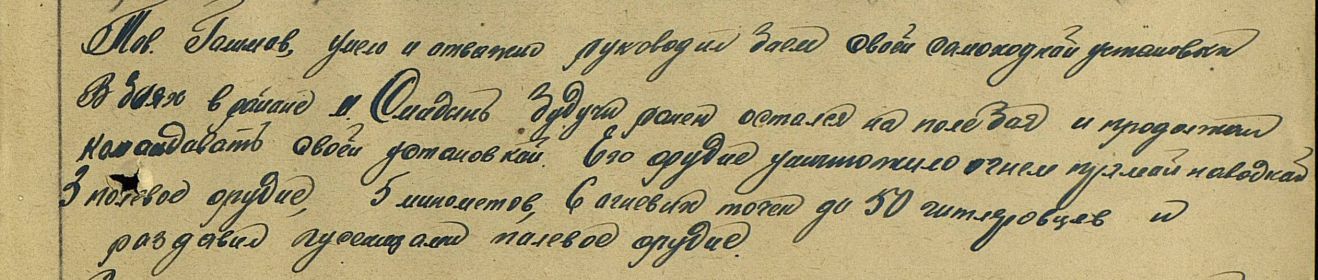 Тов. умело и отважно руководил боем своей самоходной установки
В боях в районе будучи ранен остался на поле боя и продолжал
командавать своей установкой. Его орудие уничтожило огнем прямой наводкой
3 полевое орудие, 5 минометов, 6 огневых точек до 50 гитлеровцев и
раздавил гусеницами палевое орудие.